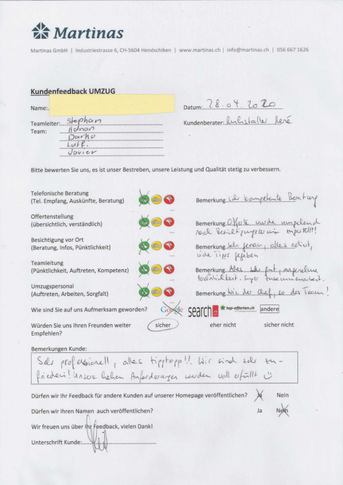 Martinas
Martinas GmbH | Industriestrasse 6, CH-5604 Hendschiken | www.martinas.ch | info@martinas.ch | 056 667 1626
Kundenfeedback UMZUG
Name:
Datum: 28.04.2020
Teamleiter: Stephan
Kundenberater: René
Team: Adnan
Darko
Luft
Javier
Bitte bewerten Sie uns, es ist unser Bestreben, unsere Leistung und Qualität stetig zu verbessern.
Telefonische Beratung
(Tel. Empfang, Auskünfte, Beratung)
Bemerkung: kompetente Beratung
Offertenstellung
(übersichtlich, verständlich)
Bemerkung: Offerte wurde umgehend
nach Besichtigungstermin zugestellt!
Besichtigung vor Ort
(Beratung, Infos, Pünktlichkeit)
Bemerkung: Sehr genau, alles notiert,
viele Tipps gegeben
Teamleitung
(Pünktlichkeit, Auftreten, Kompetenz)
Bemerkung: Alles sehr gut, angenehme
Persönlichkeit.
Umzugspersonal
(Auftreten, Arbeiten, Sorgfalt)
Bemerkung: Wie der Chef, so das Team!
Wie sind Sie auf uns Aufmerksam geworden?
Google
search.ch
top-offerten.ch
andere
Würden Sie uns Ihren Freunden weiter
Empfehlen?
sicher
eher nicht
sicher nicht
Bemerkungen Kunde:
Sehr professionell, alles tipptopp!! Wir sind sehr zu-
frieden! Unsere hohen Anforderungen wurden voll erfüllt ☺
Dürfen wir Ihr Feedback für andere Kunden auf unserer Homepage veröffentlichen?
Ja
Nein
Dürfen wir Ihren Namen auch veröffentlichen?
Ja
Nein
Wir freuen uns über Ihr Feedback, vielen Dank!
Unterschrift Kunde: